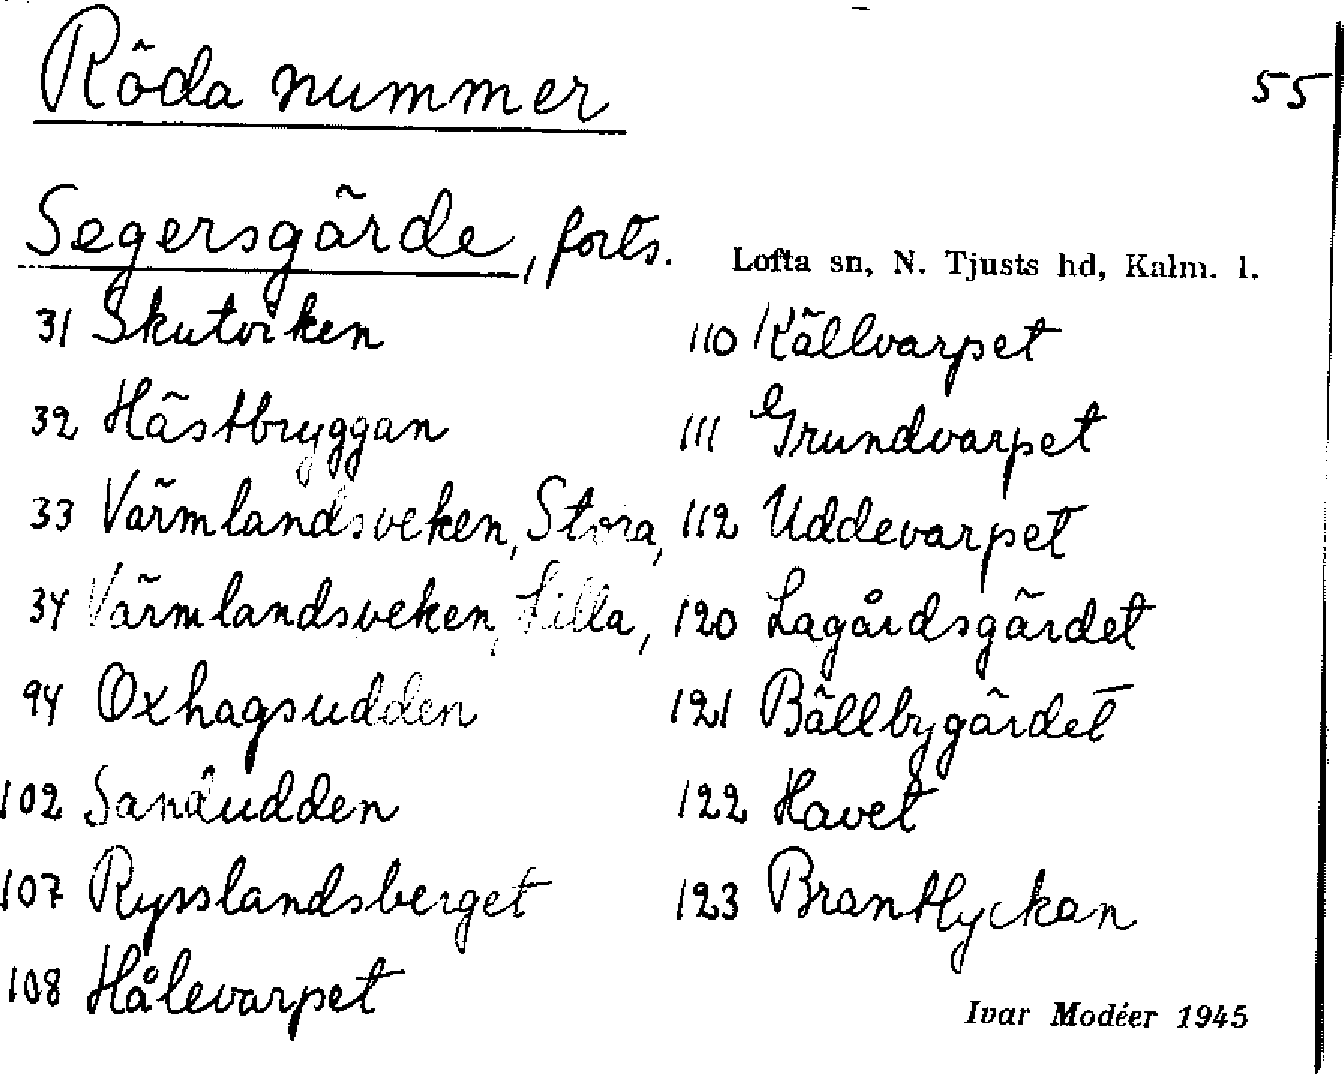 Röda nummer
55
Segersgärde, forts.
Lofta sn, N. Tjusts hd, Kalm. l.
31 Skutviken
32 Hästbryggan
33 Värmlandsveken, Stora,
34 Värmlandsveken, Lilla,
94 Oxhagsudden
102 Sandudden
107 Rysslandsberget
108 Hålevarpet
110 Källvarpet
111 Grundvarpet
112 Uddevarpet
120 Lagårdsgärdet
121 Bällbygärdet
122 Havet
123 Brantlyckan
Ivar Modéer 1945